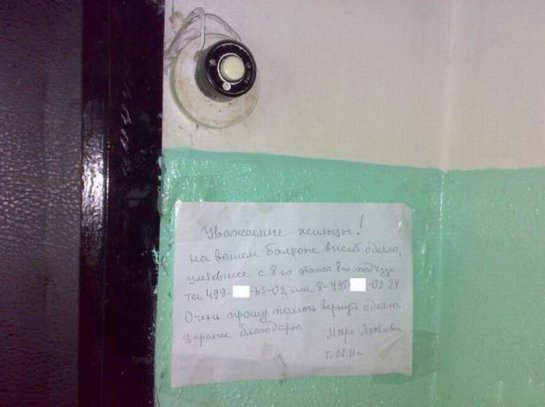 Уважаемые жильцы!
на вашем балконе висит одеяло,
улетевшее с 8го этажа 8го подъезда
тел. 499- -63-02 или 8-495- -02-29
Очень прошу помочь вернуть одеяло.
Заранее благодарю. Мара